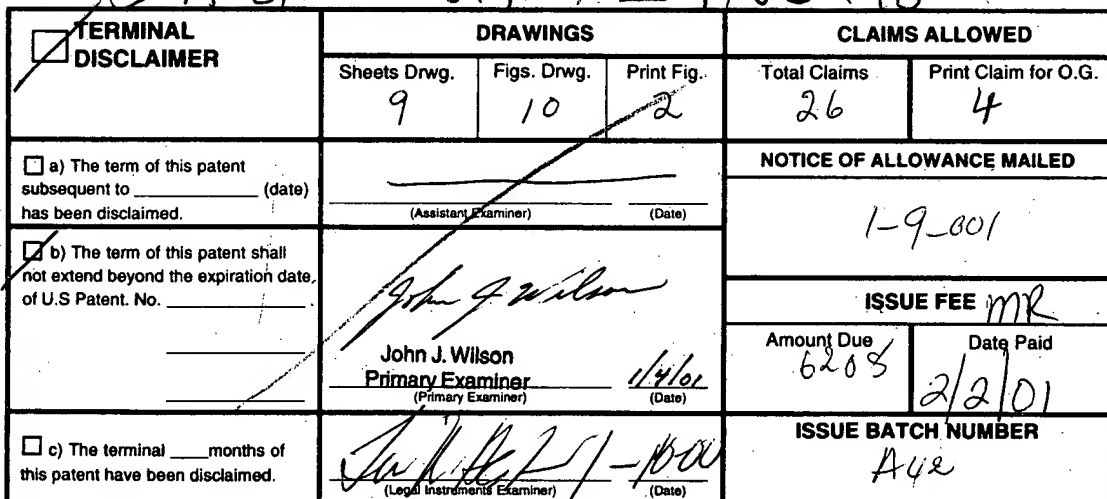 TERMINAL
DISCLAIMER
DRAWINGS
CLAIMS ALLOWED
Sheets Drwg.
Figs. Drwg.
Print Fig.
Total Claims
Print Claim for O.G.
9
10
2
26
4
a) The term of this patent
subsequent to __________ (date)
has been disclaimed.
(Assistant Examiner)
(Date)
NOTICE OF ALLOWANCE MAILED
1-9-001
b) The term of this patent shall
not extend beyond the expiration date
of U.S Patent. No. __________
John J Wilson
John J. Wilson
Primary Examiner
1/4/01
(Primary Examiner)
(Date)
ISSUE FEE MR
Amount Due
Date Paid
2/2/01
c) The terminal ____months of
this patent have been disclaimed.
(Legal Instruments Examiner)
(Date)
ISSUE BATCH NUMBER